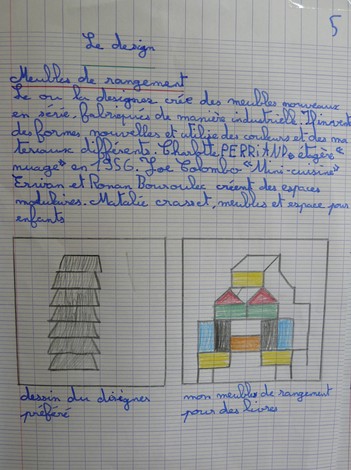 5
Le design
Meubles de rangement
Le ou la designer crée des meubles nouveaux
en série, fabriqués de manière industrielle. Il invente
des formes nouvelles et utilise des couleurs et des ma
teriaux différents. Charlotte PERRIAND, étagère "
nuage" en 1956. Joe Colombo "Mini-cuisine"
Erwan et Ronan Bouroulec créent des espaces
modulaires. Matalie crasset, meubles et espace pour
enfants
dessin du disègner
préféré
mon meuble de rangement
pour des livres